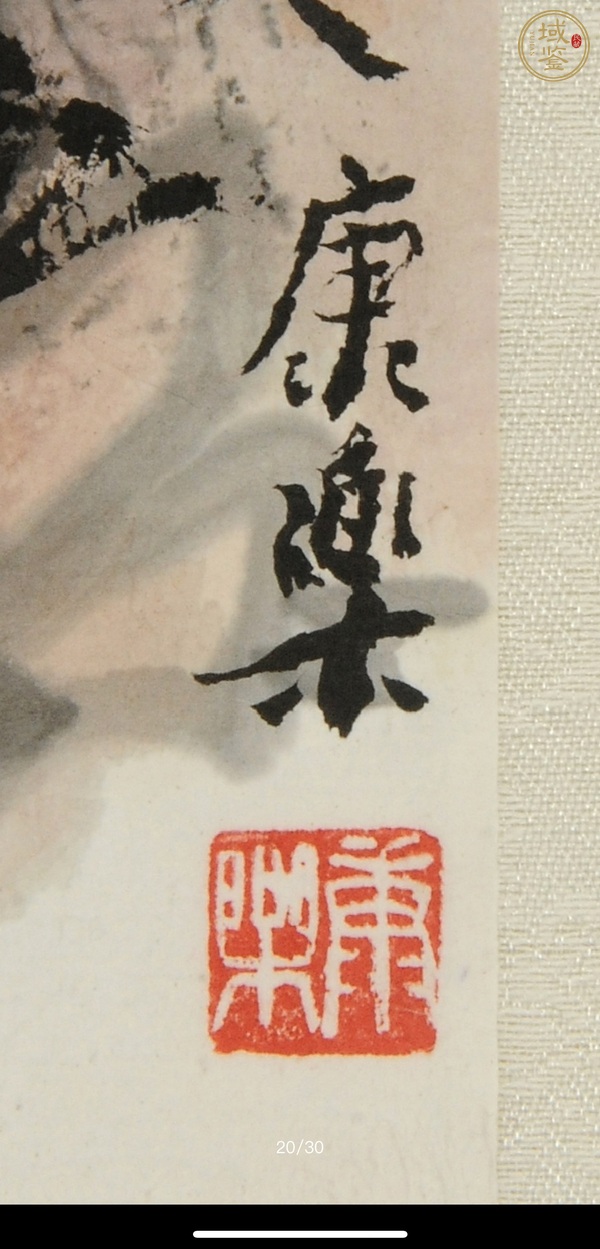 域鉴
康樂
康樂
20/30